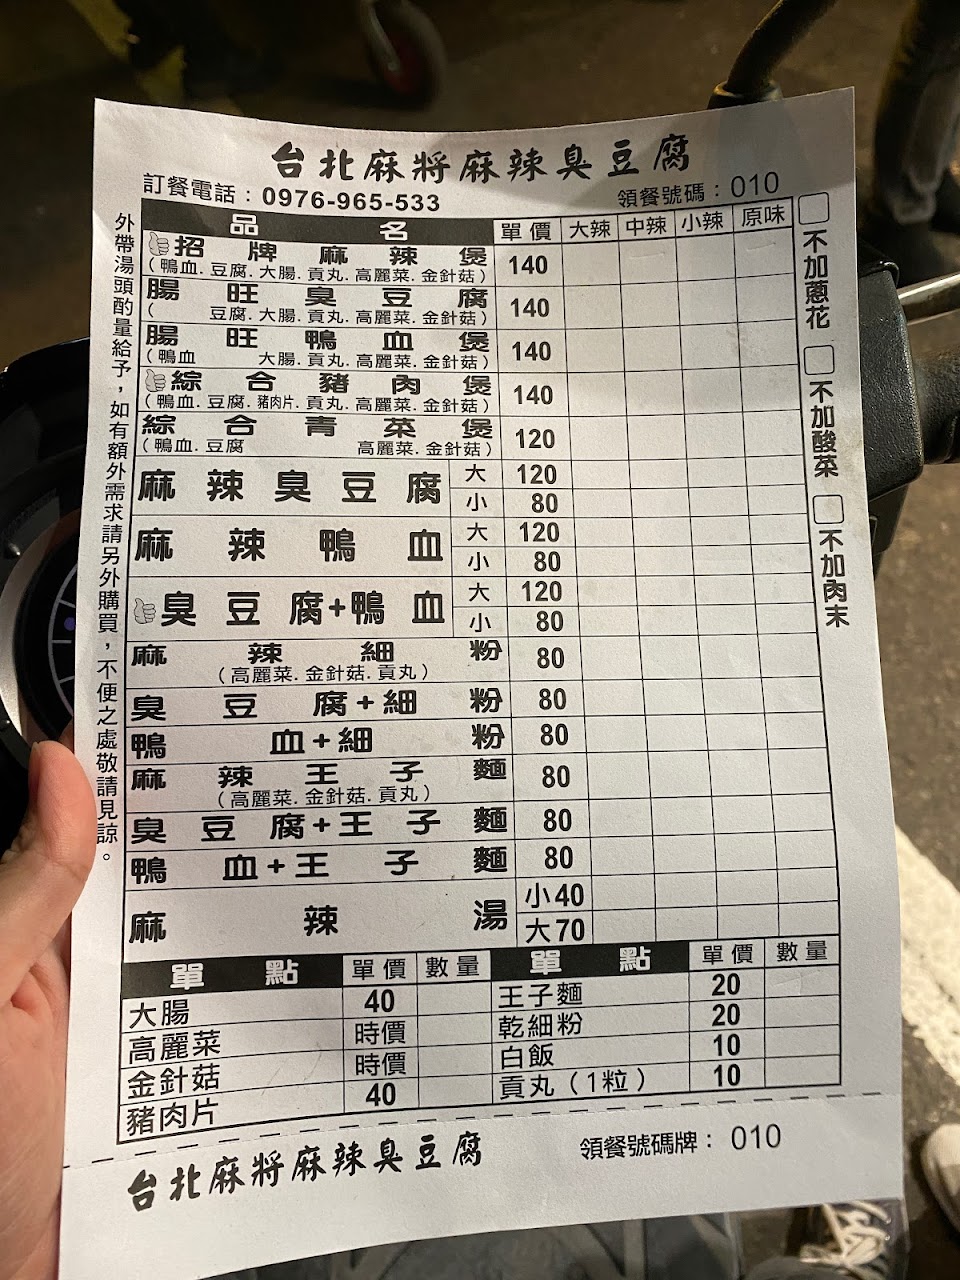 台北麻將麻辣臭豆腐
訂餐電話：0976-965-533
領餐號碼：010
品名 單價 大辣 中辣 小辣 原味
招牌麻辣煲 140
（鴨血.豆腐.大腸.貢丸.高麗菜.金針菇）
腸旺臭豆腐 140
（ 豆腐.大腸.貢丸.高麗菜.金針菇）
腸旺鴨血煲 140
（鴨血 大腸.貢丸.高麗菜.金針菇）
綜合豬肉煲 140
（鴨血.豆腐.豬肉片.貢丸.高麗菜.金針菇）
綜合青菜煲 120
（鴨血.豆腐 高麗菜.金針菇）
麻辣臭豆腐 大 120
小 80
麻辣鴨血 大 120
小 80
臭豆腐+鴨血 大 120
小 80
麻辣細粉 80
（高麗菜.金針菇.貢丸）
臭豆腐+細粉 80
鴨血+細粉 80
麻辣王子麵 80
（高麗菜.金針菇.貢丸）
臭豆腐+王子麵 80
鴨血+王子麵 80
麻辣湯 小40
大70
單點 單價 數量 單點 單價 數量
大腸 40 王子麵 20
高麗菜 時價 乾細粉 20
金針菇 時價 白飯 10
豬肉片 40 貢丸（1粒） 10
不加蔥花
不加酸菜
不加肉末
外帶湯頭酌量給予，如有額外需求請另外購買，不便之處敬請見諒。
台北麻將麻辣臭豆腐
領餐號碼牌：010